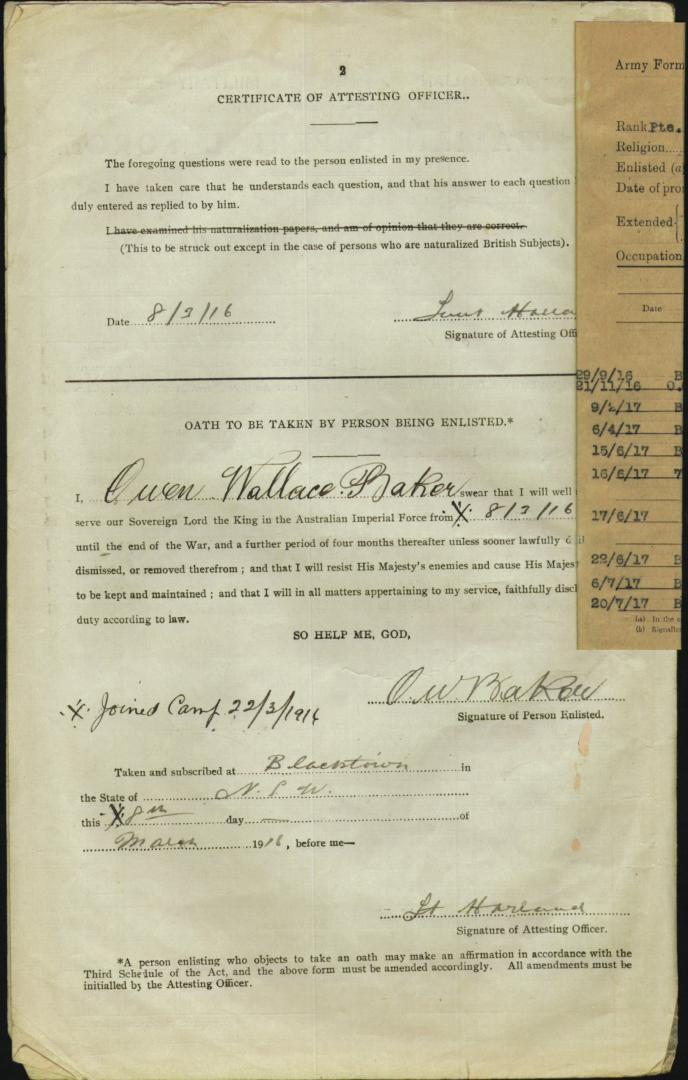 2
CERTIFICATE OF ATTESTING OFFICER..
The foregoing questions were read to the person enlisted in my presence.
I have taken care that he understands each question, and that his answer to each question
duly entered as replied to by him.
I have examined his naturalization papers, and am of opinion that they are correct.
(This to be struck out except in the case of persons who are naturalized British Subjects).
Date 8/3/16
Signature of Attesting Offi
OATH TO BE TAKEN BY PERSON BEING ENLISTED.*
I, Owen Wallace Baker swear that I will well
serve our Sovereign Lord the King in the Australian Imperial Force from X 8/3/16
until the end of the War, and a further period of four months thereafter unless sooner lawfully
dismissed, or removed therefrom ; and that I will resist His Majesty's enemies and cause His Majes
to be kept and maintained ; and that I will in all matters appertaining to my service, faithfully disc
duty according to law.
SO HELP ME, GOD,
X Joined Camp 22/3/1916
O W Baker
Signature of Person Enlisted.
Taken and subscribed at Blacktown in
the State of N. S. W.
this X 8th day of
March 1916, before me—
Lt Harland
Signature of Attesting Officer.
*A person enlisting who objects to take an oath may make an affirmation in accordance with the
Third Schedule of the Act, and the above form must be amended accordingly. All amendments must be
initialled by the Attesting Officer.
Army Form
Rank Pte.
Religion
Enlisted (a)
Date of pro
Extended
Occupation
Date
29/9/16 B
21/11/16 O.
9/2/17 B
6/4/17 B
15/6/17 B
16/6/17 7
17/6/17
22/6/17 B
6/7/17 B
20/7/17 B
(a) In the c
(b) Signaller